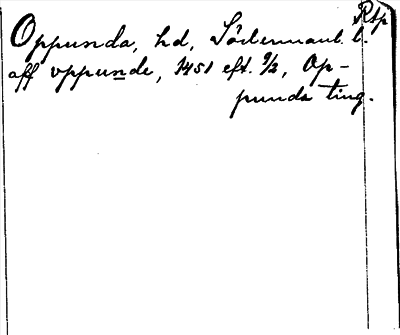 Rtp
Oppunda, hd, Södermanl. l.
aff vppunde, 1451 eft. 9/2, Op-
punda ting.